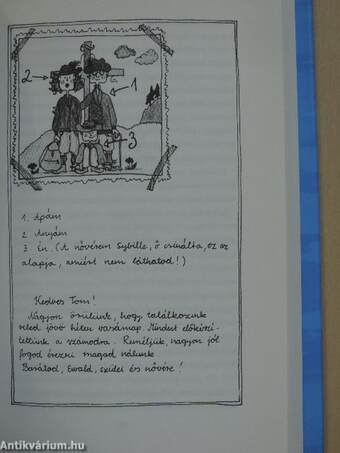 2
1
3
1. Apám
2. Anyám
3. Én. (A nővérem Sybille, ő csinálta, ez az
alapja, amiért nem láthatod!)
Kedves Tom!
Nagyon örülünk, hogy találkozunk
veled jövő héten vasárnap. Mindent előkészí-
tettünk a számodra. Reméljük, nagyon jól
fogod érezni magad nálunk
Barátod, Ewald, szülei és nővére!
Antikvárium.hu